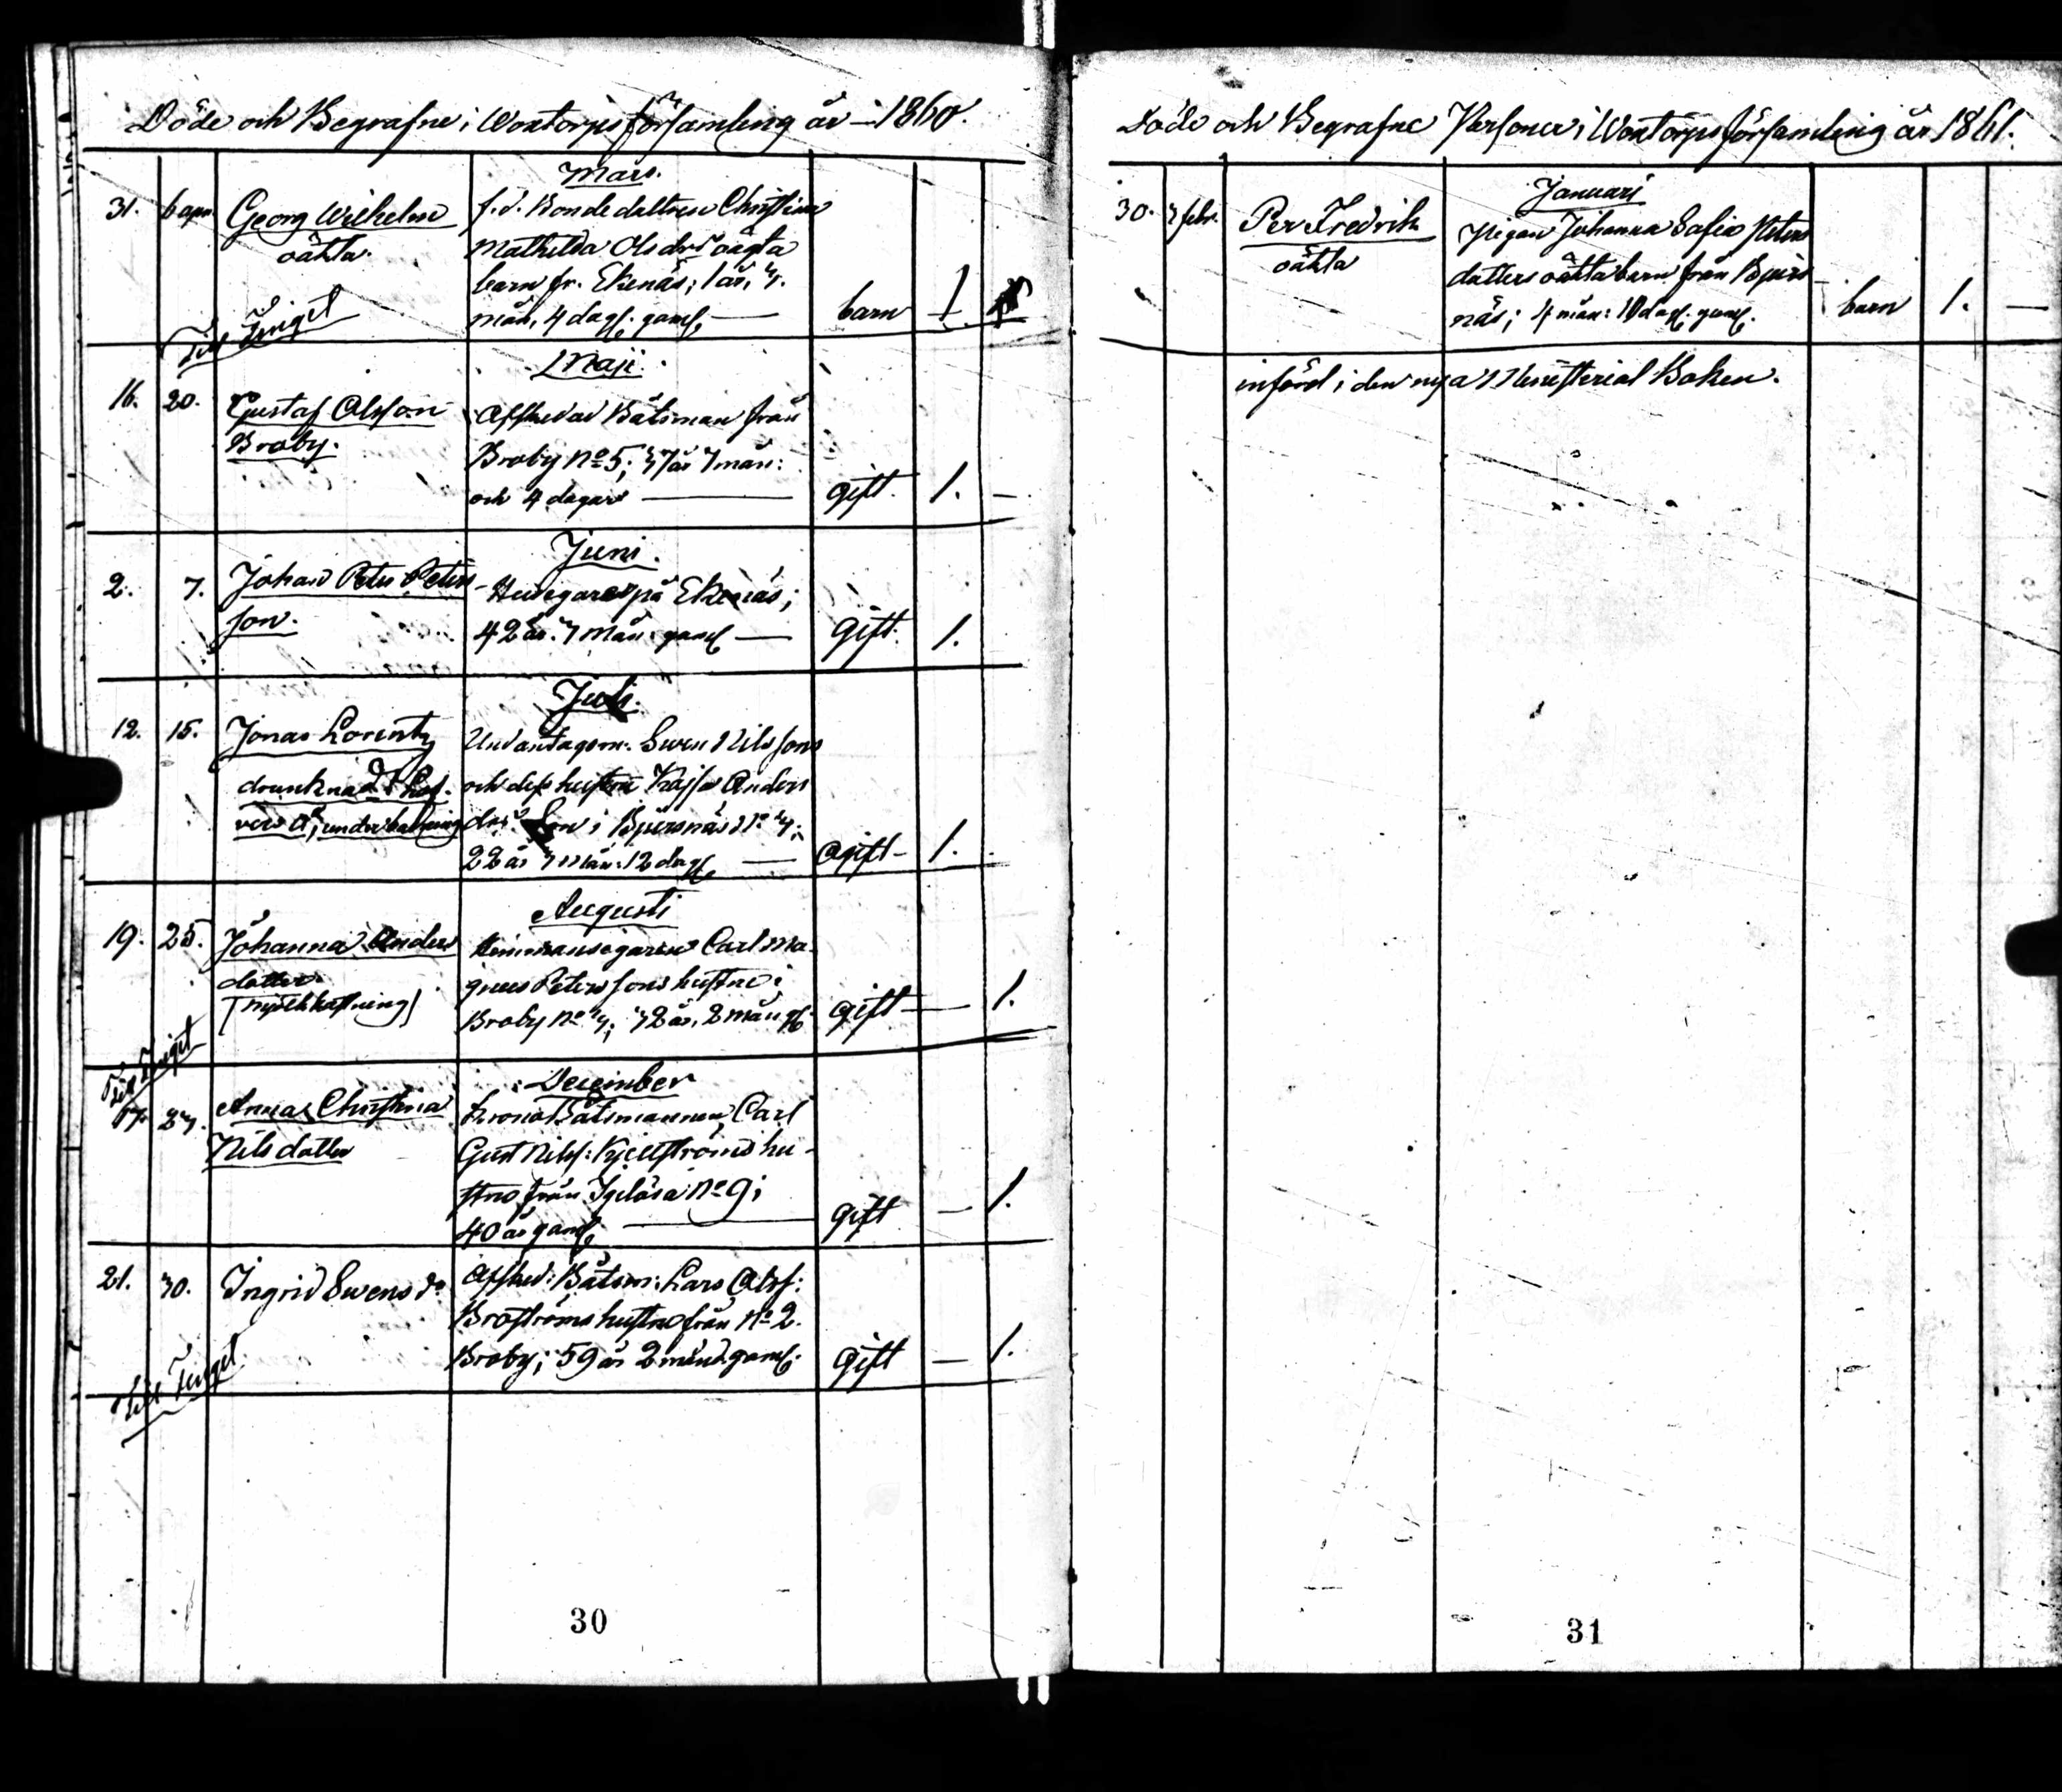 Döde och Begrafne i Woxtorps församling år 1860.
Mars.
31. 6 apr. Georg Wilhelm f.d. Bondedottren Christina
oäkta. Mathilda Olsdrs oägta
barn fr. Ekenäs; 1 år, 7.
mån. 4 dag. gam. — barn 1.
Till Tinget
Maji.
16. 20. Gustaf Olsson Afskedad Båtsman från
Broby. Broby No 5; 37 år 7 mån:
och 4 dagar — gift. 1. —
Juni.
2. 7. Johan Peter Peters- på Ekenäs;
son. 42 år. 7 mån. gam — Gift. 1.
Juli.
12. 15. Jonas Lorentz Undantagsm. Swen Nilssons
drunknad i och dess hustru Kajsa Anders
under badning drs Son i Bjursnäs No 4;
22 år 7 mån: 12 dag — ogift — 1.
Augusti
19. 25. Johanna Anders Hemmansegaren Carl Ma-
dotter gnus Peterssons hustru i
Broby No 4; 72 år. 2 mån gift — 1.
Till Tinget
December
17. 27. Anna Christina Kronobåtsmannen, Carl
Nilsdotter Gust Nilss: Kjellströms hu-
stru från Igelösa No 9;
40 år gam — gift — 1.
21. 30. Ingrid Swensdr Afsked: Båtsm: Lars Olss:
Broströms hustru från No 2.
Broby; 59 år 2 mån gam; gift — 1.
Till Tinget
30
Döde och Begrafne Personer i Woxtorps församling år 1861.
Januari
30. 3 febr. Per Fredrik Pigan Johanna Sofia Peters
oäkta dotters oäkta barn från Bjurs
näs; 4 mån: 10 dag. gam. barn 1. —
införd i den nya Ministerial Boken.
31